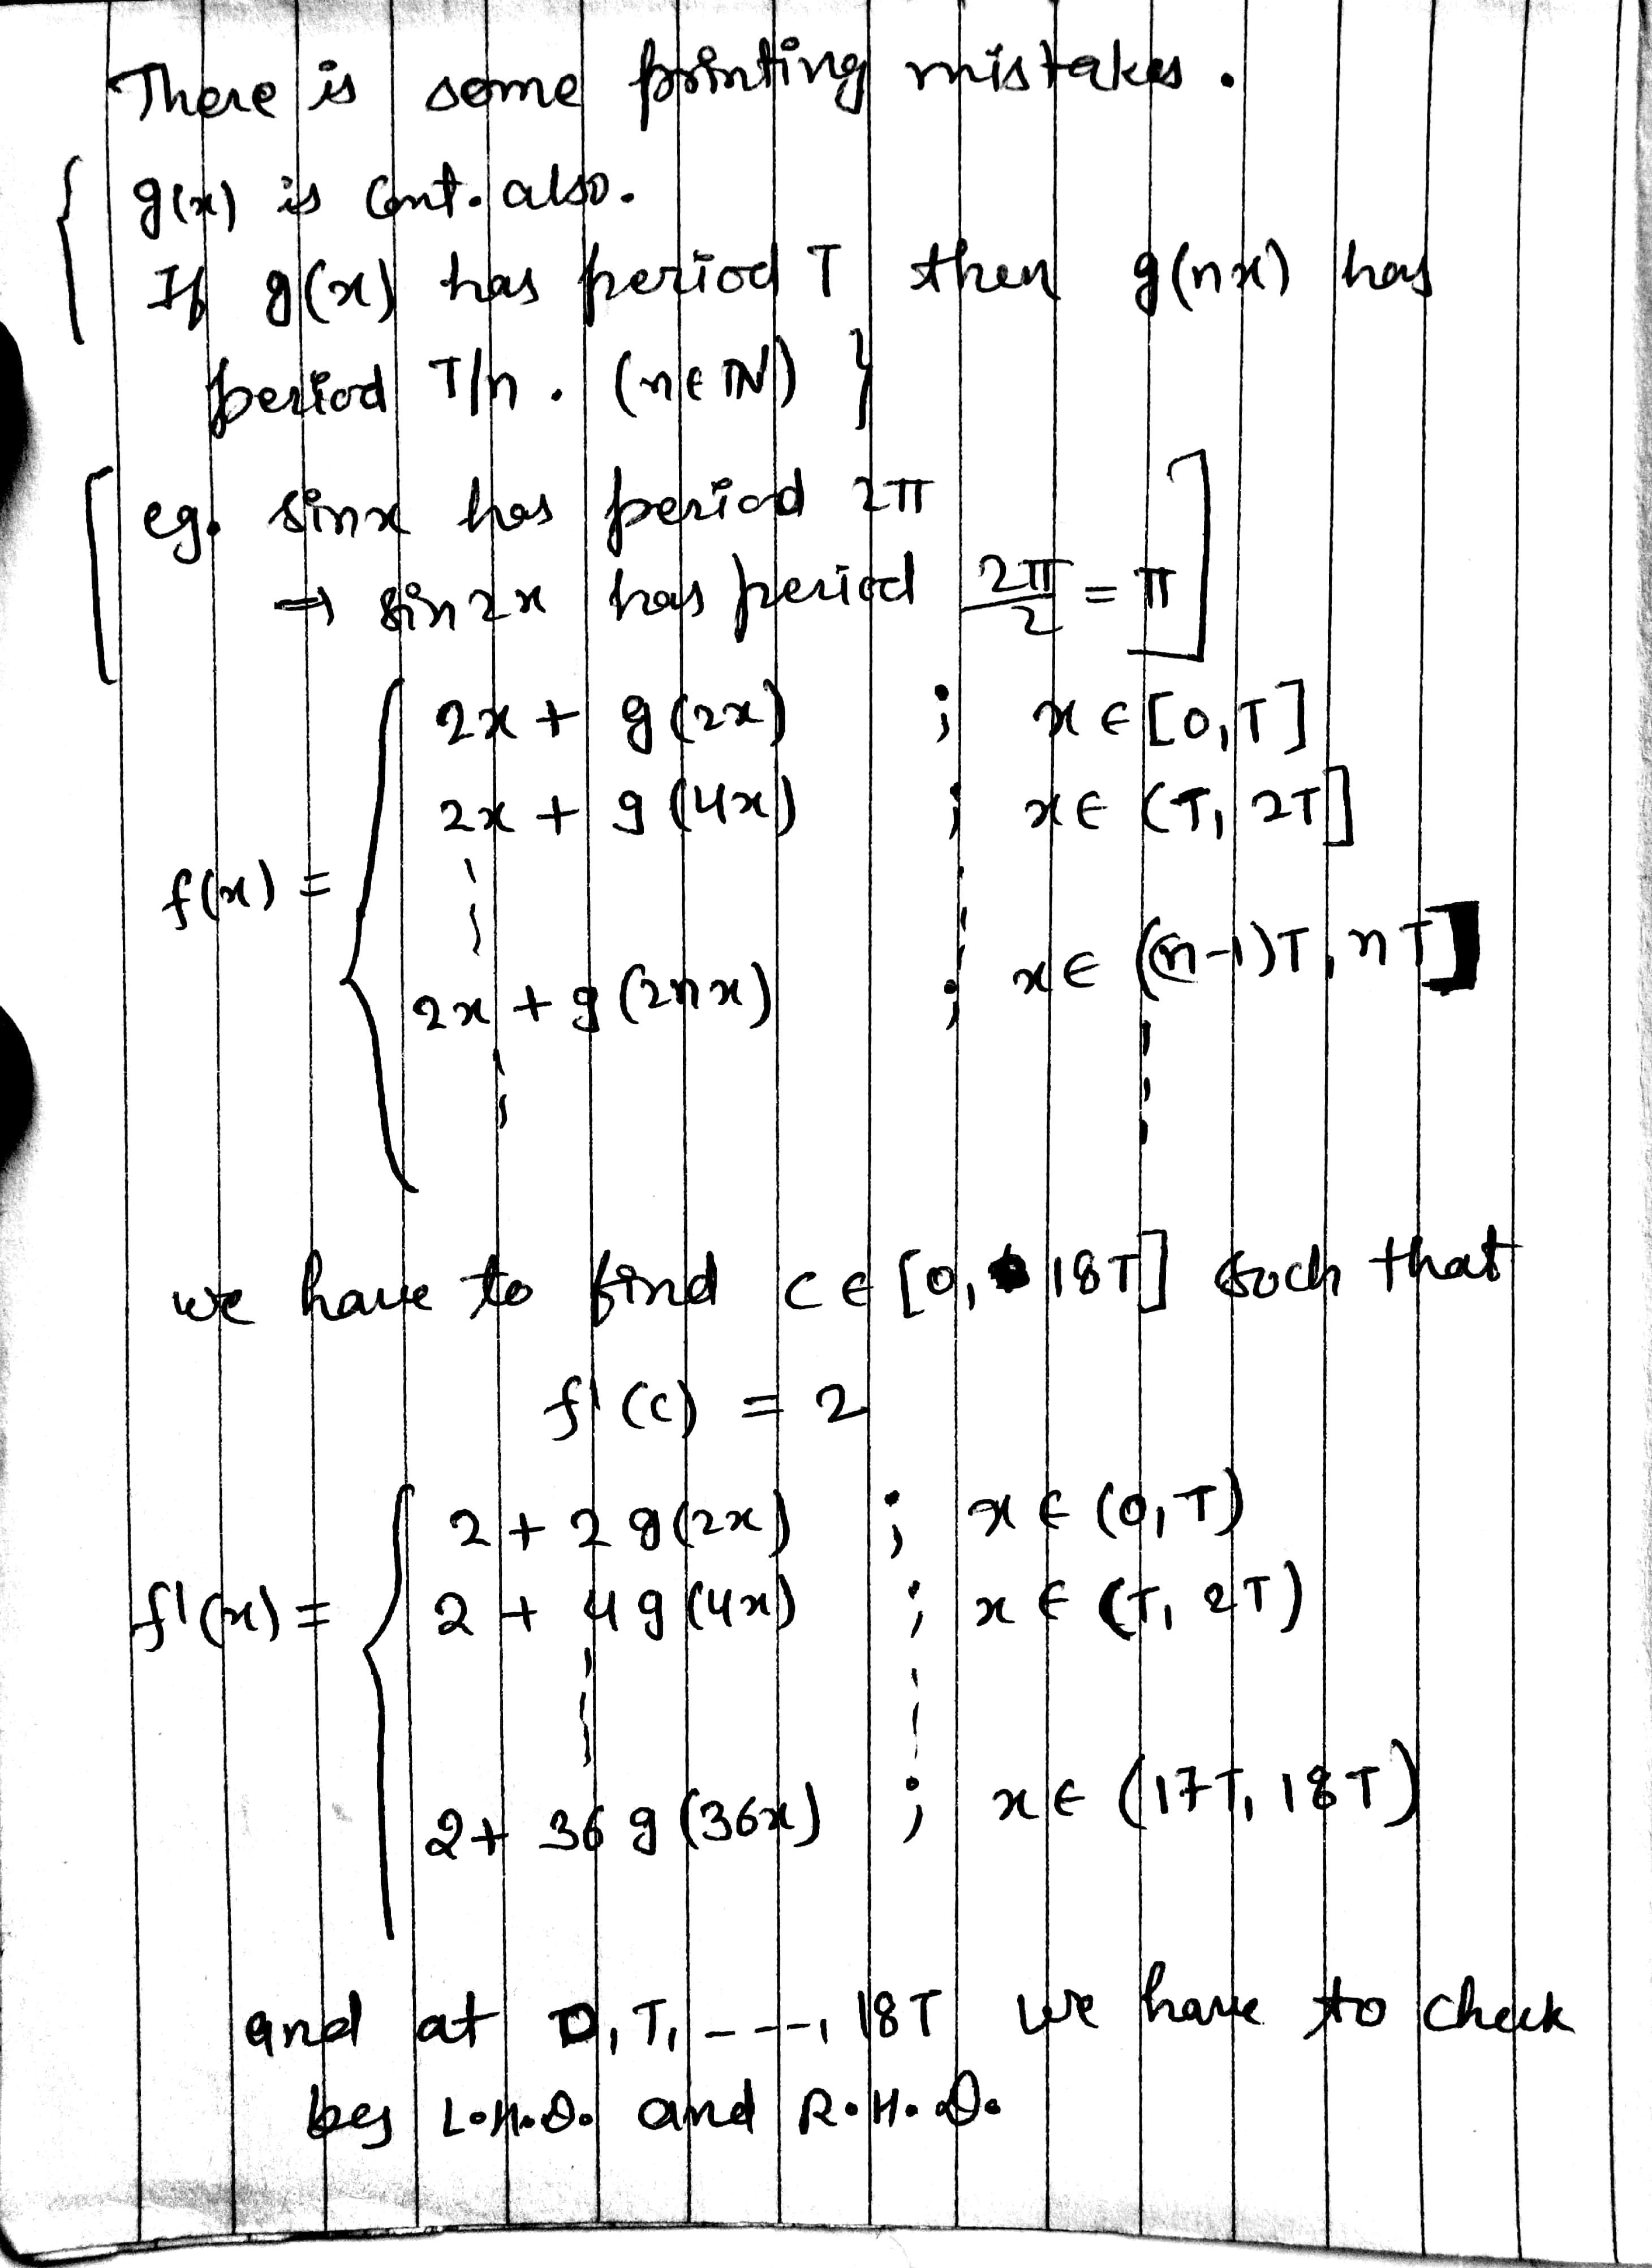 There is some printing mistakes.
{ g(x) is Cont. also.
If g(x) has period T then g(nx) has
period T/n. (n∈ℕ) }
[ eg. sinx has period 2π
⇒ sin2x has period 2π/2 = π ]
f(x) = { 2x + g(2x) ; x ∈ [0,T]
2x + g(4x) ; x ∈ (T, 2T]
2x + g(2nx) ; x ∈ ((n-1)T, nT]
we have to find c ∈ [0, 18T] such that
f'(c) = 2
f'(x) = { 2 + 2g(2x) ; x ∈ (0,T)
2 + 4g(4x) ; x ∈ (T, 2T)
2 + 36g(36x) ; x ∈ (17T, 18T)
and at 0, T, ---, 18T we have to check
L.H.D. and R.H.D.